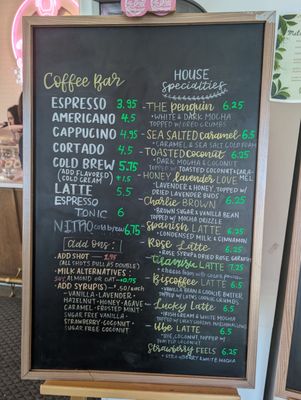 Coffee Bar
ESPRESSO 3.95
AMERICANO 4.5
CAPPUCINO 4.5
CORTADO 4.5
COLD BREW 5.75
(ADD FLAVORED COLD CREAM) +1.5
LATTE 5.5
ESPRESSO
TONIC 6
NITRO cold brew 6.75
Add Ons:
- ADD SHOT —
(ALL SHOTS PULL AS DOUBLE)
- MILK ALTERNATIVES -
ALMOND OR OAT
- ADD SYRUPS! - .50/each
- VANILLA - LAVENDER -
HAZELNUT - HONEY - AGAVE
CARAMEL - FROSTED MINT
SUGAR FREE VANILLA -
STRAWBERRY - COCONUT -
SUGAR FREE COCONUT
HOUSE
Specialties
- THE penguin 6.25
- WHITE & DARK MOCHA
TOPPED W/ OREO CRUMBS
- SEA SALTED caramel 6.5
- CARAMEL & SEA SALT COLD FOAM
- TOASTED COCONUT 6.25
- DARK MOCHA & COCONUT
TOPPED W/ TOASTED COCONUT & CARAMEL
- HONEY lavender LOVE 6.5
- LAVENDER & HONEY, TOPPED W/
DRIED LAVENDER BUDS
- Charlie BROWN 6.25
- BROWN SUGAR & VANILLA BEAN
TOPPED W/ MOCHA DRIZZLE
- Spanish LATTE 6.25
- CONDENSED MILK & CINNAMON
- Rose Latte 6.25
- ROSE SYRUP & DRIED ROSE
- Tiramisu LATTE 7.25
- Biscoffee LATTE 6.5
- VANILLA BEAN & COOKIE BUTTER
TOPPED W/ LOTUS COOKIE CRUMBS
- Lucky Latte 6.5
- IRISH CREAM & WHITE MOCHA
TOPPED W/ LUCKY CHARMS MARSHMALLOWS
- Ube LATTE 6.5
- UBE, COCONUT, TOPPED W/
COCONUT
- Strawberry FEELS 6.25
- STRAWBERRY & WHITE MOCHA